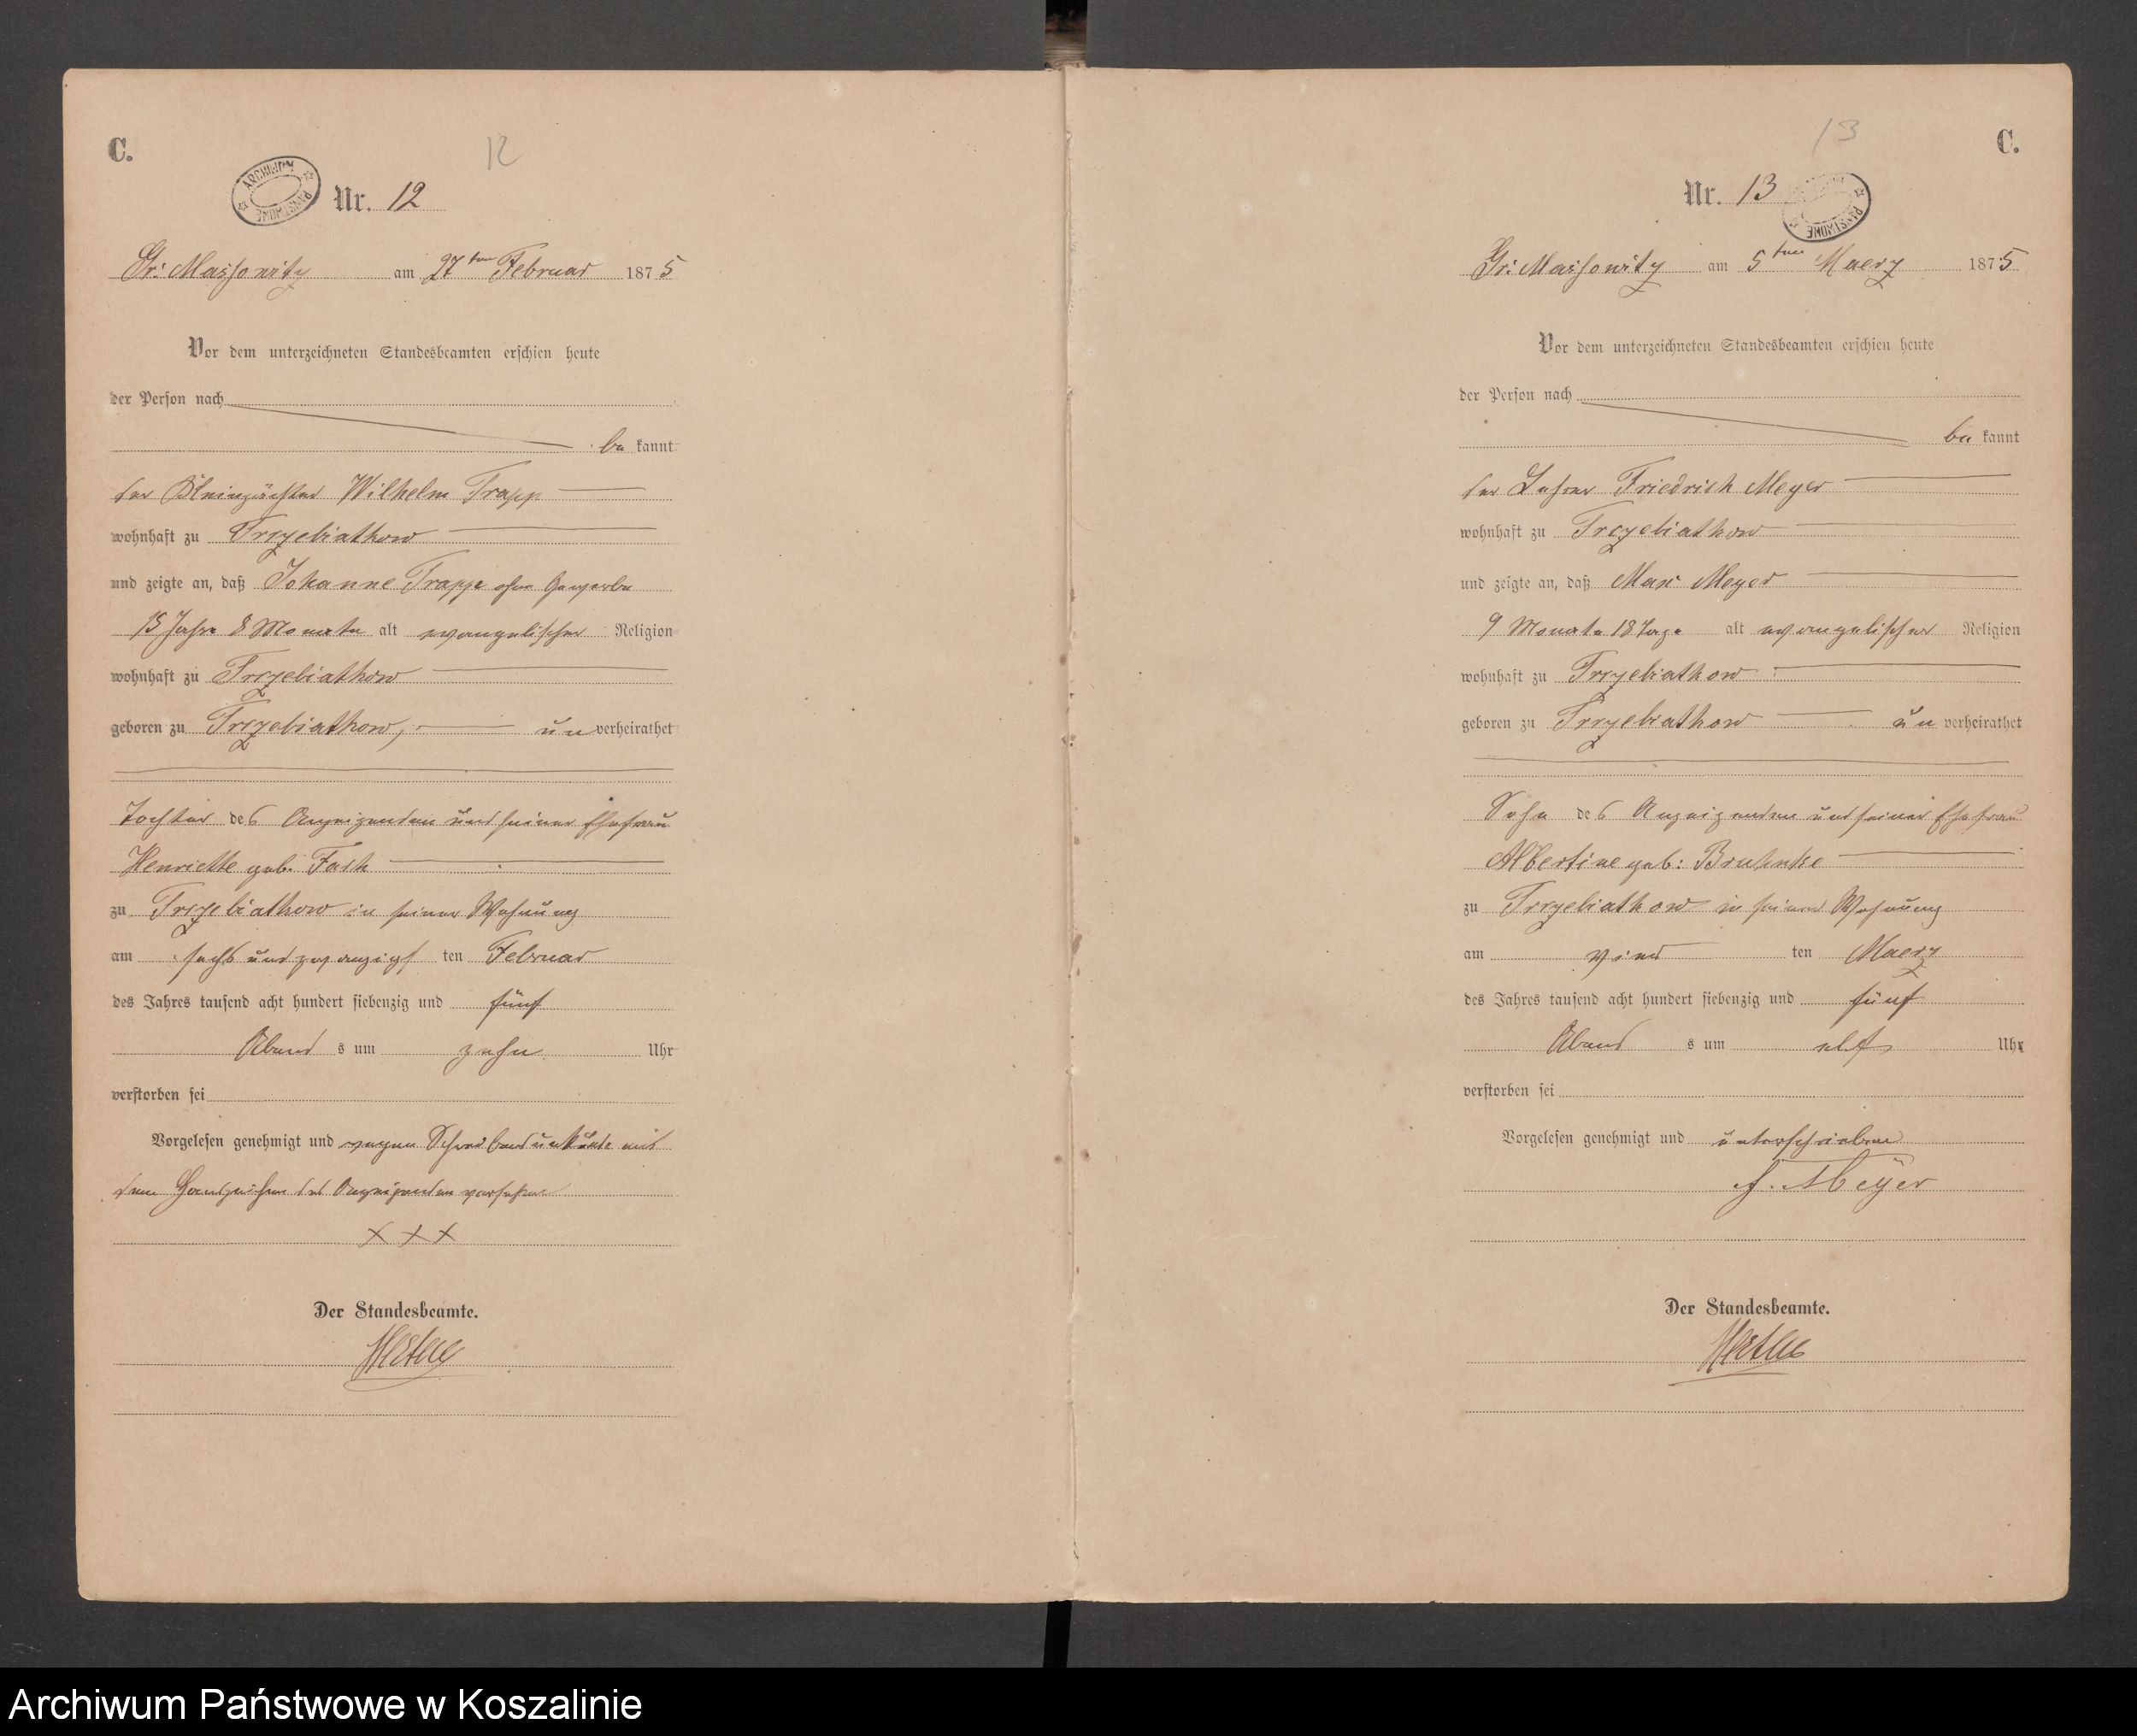 C.
12
ARCHIWUM PAŃSTWOWE
Nr. 12
Gr: Massowitz am 27ten Februar 1875
Vor dem unterzeichneten Standesbeamten erschien heute
der Person nach
bekannt
der Kleinpächter Wilhelm Trapp
wohnhaft zu Trzebiatkow
und zeigte an, daß Johanne Trapp ohne Gewerbe
15 Jahre 8 Monate alt evangelischer Religion
wohnhaft zu Trzebiatkow
geboren zu Trzebiatkow, unverheirathet
Tochter des Anzeigenden und seiner Ehefrau
Henriette geb.
zu Trzebiatkow in seiner Wohnung
am sechs und zwanzigsten Februar
des Jahres tausend acht hundert siebenzig und fünf
Abends um zehn Uhr
verstorben sei
Vorgelesen genehmigt und wegen Schreibensunkunde mit
dem Handzeichen des Anzeigenden versehen
XXX
Der Standesbeamte.
C.
13
Nr. 13
PAŃSTWOWE
Gr: Massowitz am 5ten Maerz 1875
Vor dem unterzeichneten Standesbeamten erschien heute
der Person nach
bekannt
der Lehrer Friedrich Meyer
wohnhaft zu Trzebiatkow
und zeigte an, daß Max Meyer
9 Monate 18 Tage alt evangelischer Religion
wohnhaft zu Trzebiatkow
geboren zu Trzebiatkow unverheirathet
Sohn des Anzeigenden und seiner Ehefrau
Albertine geb:
zu Trzebiatkow in seiner Wohnung
am vierten Maerz
des Jahres tausend acht hundert siebenzig und fünf
Abends um elf Uhr
verstorben sei
Vorgelesen genehmigt und unterschrieben
F. Meÿer
Der Standesbeamte.
Archiwum Państwowe w Koszalinie